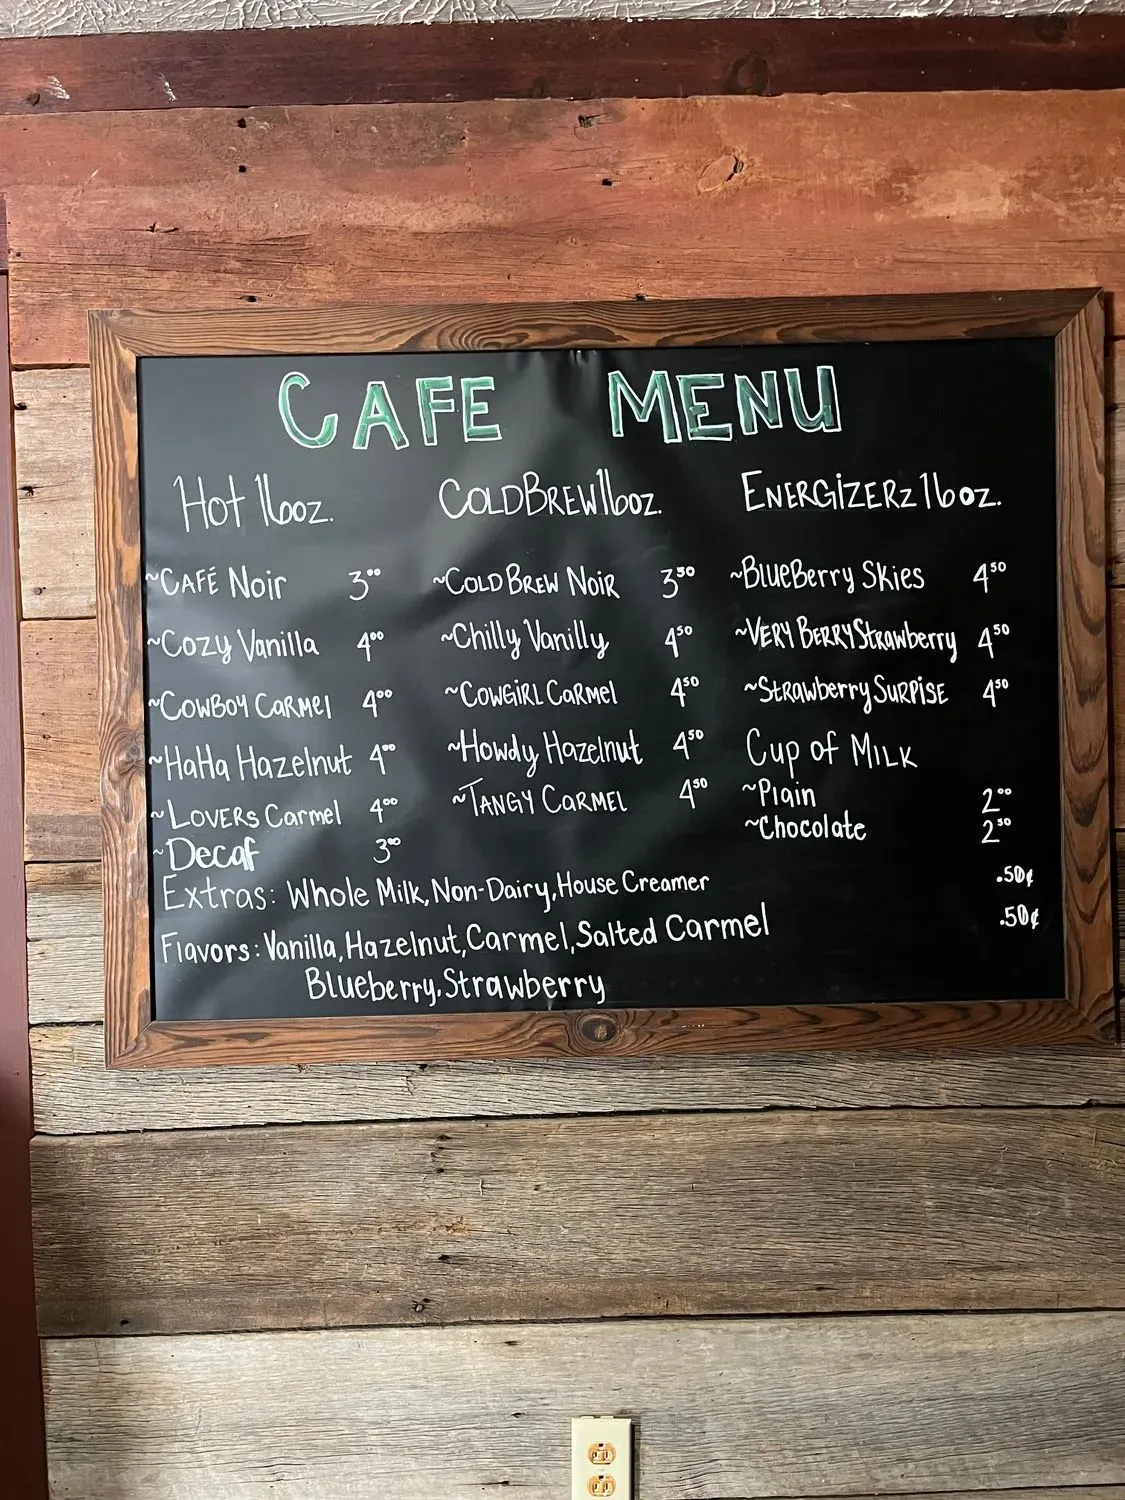 CAFE MENU
Hot 16oz.
~CAFÉ Noir 3⁰⁰
~Cozy Vanilla 4⁰⁰
~COWBOY CARMEl 4⁰⁰
~HaHa Hazelnut 4⁰⁰
~LOVERS Carmel 4⁰⁰
~Decaf 3⁰⁰
COLDBREW16oz.
~COLD BREW NOIR 3⁵⁰
~Chilly Vanilly 4⁵⁰
~COWGIRL CARMEl 4⁵⁰
~Howdy Hazelnut 4⁵⁰
~TANGY CARMEL 4⁵⁰
ENERGIZERz 16oz.
~BlueBerry Skies 4⁵⁰
~VERY BERRY Strawberry 4⁵⁰
~Strawberry SURPISE 4⁵⁰
Cup of MILK
~Plain 2⁰⁰
~Chocolate 2⁵⁰
Extras: Whole Milk, Non-Dairy, House Creamer .50¢
Flavors: Vanilla, Hazelnut, Carmel, Salted Carmel .50¢
Blueberry, Strawberry